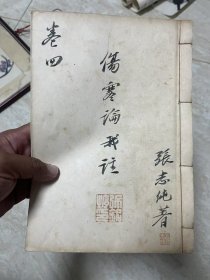 張志純著
傷寒論我註
卷四